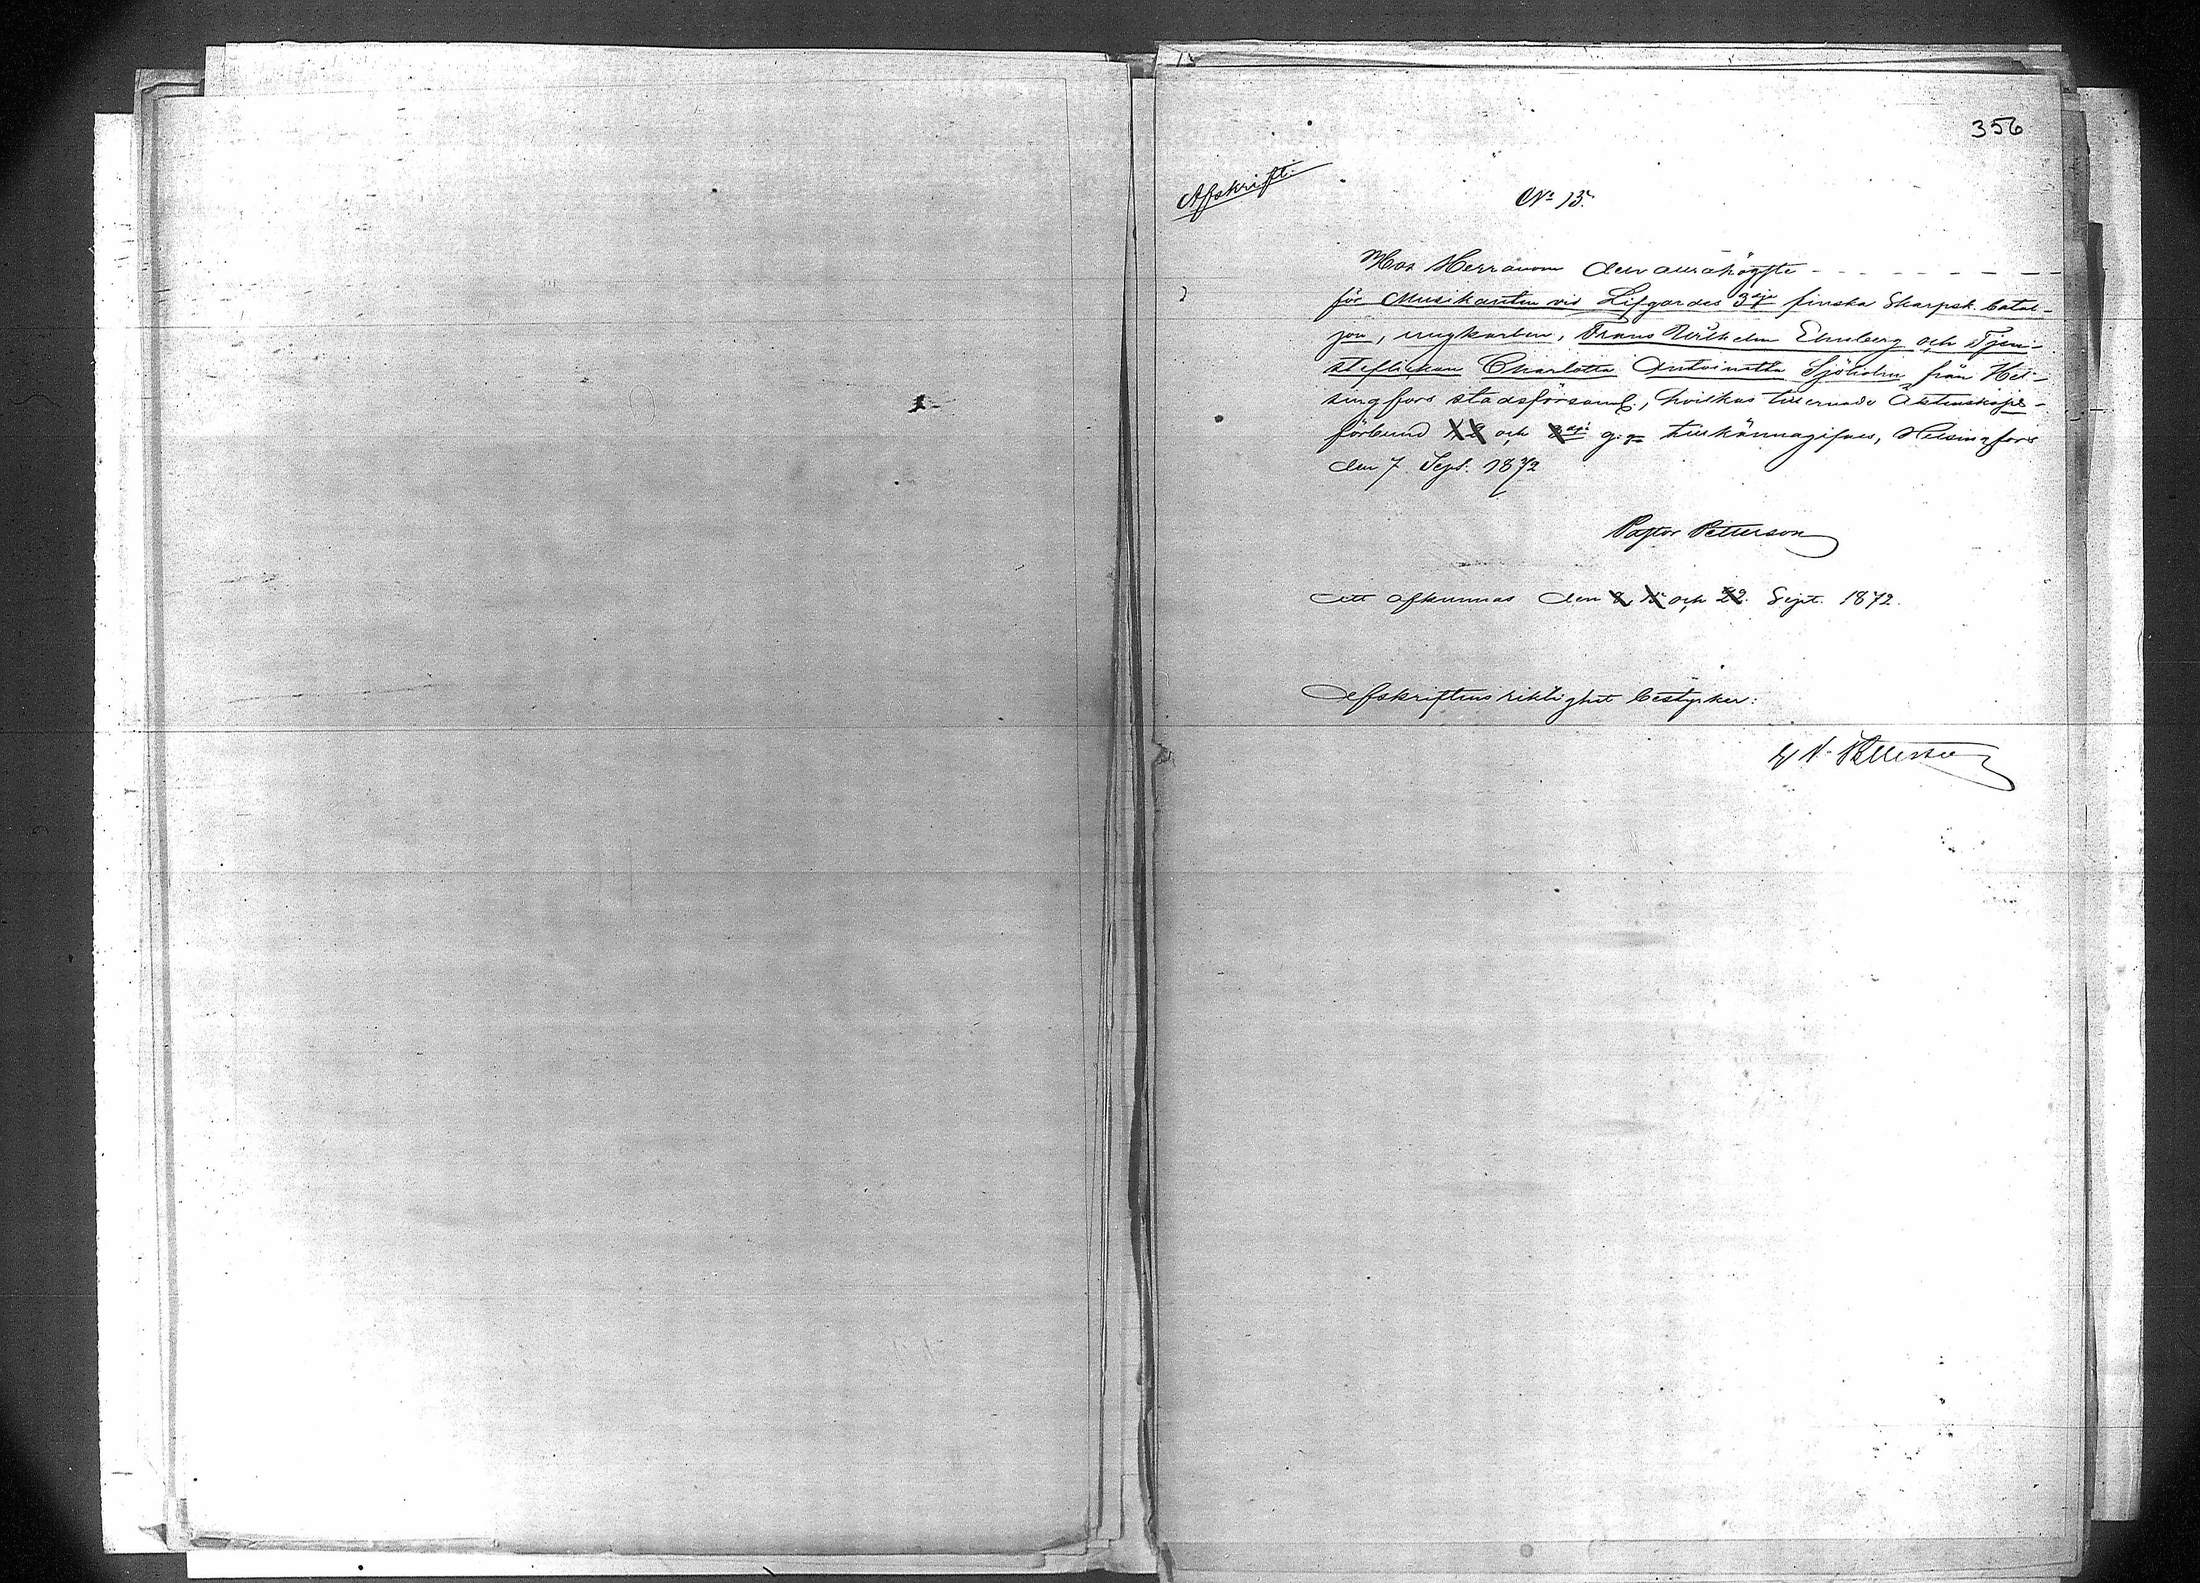 356
Afskrift.
No 15.
Hos Herranom den aurahögste - - - - -
för Musikanten vid Lifgardes 3dje finska Skarpsk. batal-
jon, ungkarlen, Frans Wilhelm Ehnberg och Tjen-
steflickan Charlotta Antoinetta Sjöholm från Hel-
singfors stadsförsaml., hvilkas tillernade Äktenskaps-
förbund och g.ga tillkännagifves, Helsingfors
den 7 Sept. 1872
Pastor Petterson
Att afkunnas den 8, 15 och 22. Sept. 1872.
Afskriftens riktighet bestyrker:
Petterson